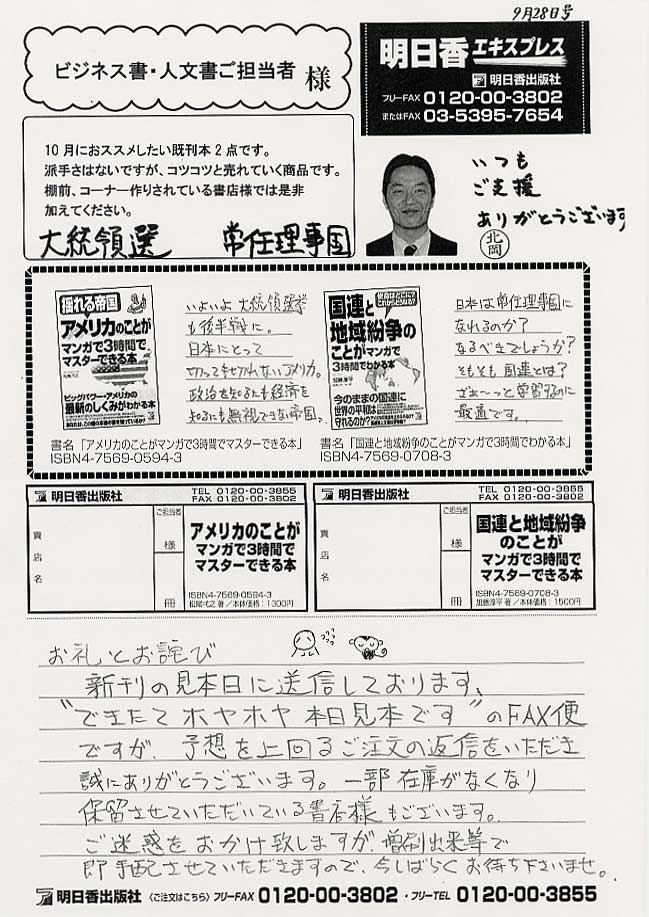 9月28日号
ビジネス書・人文書ご担当者 様
明日香エキスプレス
明日香出版社
フリーFAX 0120-00-3802
またはFAX 03-5395-7654
10月におススメしたい既刊本2点です。
派手さはないですが、コツコツと売れていく商品です。
棚前、コーナー作りされている書店様では是非
加えてください。
大統領選 常任理事国
いつも
ご支援
ありがとうございます
北岡
揺れる帝国
アメリカのことが
マンガで3時間で
マスターできる本
ビッグパワー・アメリカの
最新のしくみがわかる本
いよいよ大統領選挙
も後半戦に。
日本にとって
切っても切れないアメリカ。
政治を知るにも経済を
知るにも無視できない帝国。
国連と
地域紛争の
ことがマンガで
3時間でわかる本
今のままの国連に
世界の平和は
守れるのか?
日本は常任理事国に
なれるのか?
なるべきでしょうか?
そもそも国連とは?
ざぁ〜っと学習するのに
最適です。
書名「アメリカのことがマンガで3時間でマスターできる本」
ISBN4-7569-0594-3
書名「国連と地域紛争のことがマンガで3時間でわかる本」
ISBN4-7569-0708-3
明日香出版社 TEL 0120-00-3855
FAX 0120-00-3802
貴店名
ご担当者
様
冊
アメリカのことが
マンガで3時間で
マスターできる本
ISBN4-7569-0594-3
松尾弌之 著/本体価格:1300円
明日香出版社 TEL 0120-00-3855
FAX 0120-00-3802
貴店名
ご担当者
様
冊
国連と地域紛争
のことが
マンガで3時間で
マスターできる本
ISBN4-7569-0708-3
加藤淳平 著/本体価格:1500円
お礼とお詫び
新刊の見本日に送信しております、
"できたてホヤホヤ本日見本です"のFAX便
ですが、予想を上回るご注文の返信をいただき
誠にありがとうございます。一部在庫がなくなり
保留させていただいている書店様もございます。
ご迷惑をおかけ致しますが、増刷出来等で
即手配させていただきますので、今しばらくお待ち下さいませ。
明日香出版社 〈ご注文はこちら〉フリーFAX 0120-00-3802 ・フリーTEL 0120-00-3855